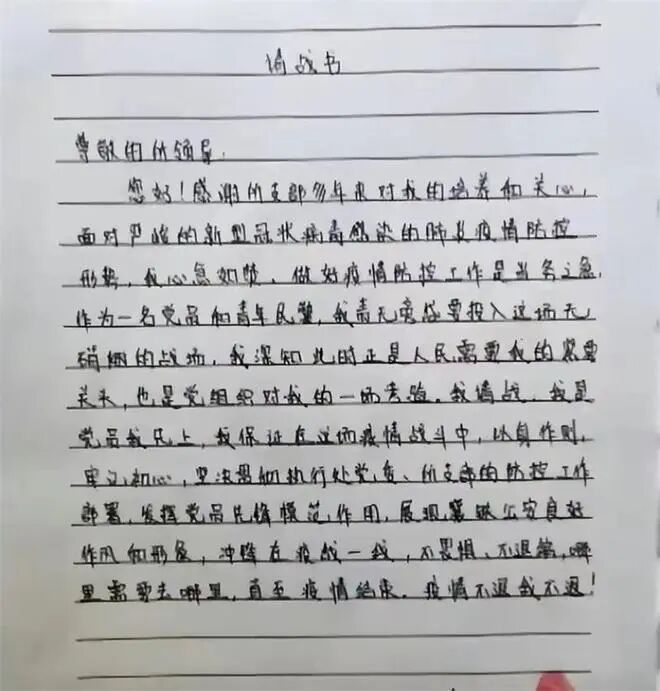 请战书
尊敬的所领导：
您好！感谢所支部多年来对我的培养和关心，
面对严峻的新型冠状病毒感染的肺炎疫情防控
形势，我心急如焚，做好疫情防控工作是当务之急，
作为一名党员和青年民警，我责无旁贷要投入这场无
硝烟的战场，我深知此时正是人民需要我的紧要
关头，也是党组织对我的一场考验。我请战，我是
党员我先上，我保证在这场疫情战斗中，以身作则，
牢记初心，坚决贯彻执行处党委、所支部的防控工作
部署，发挥党员先锋模范作用，展现襄铁公安良好
作风和形象，冲锋在疫战一线，不畏惧、不退缩，哪
里需要去哪里，直至疫情结束。疫情不退我不退！